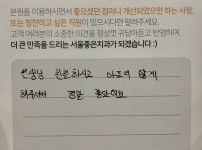 본원을 이용하시면서 좋으셨던 점이나 개선되었으면 하는 사항,
또는 칭찬하고 싶은 직원이 있으시다면 알려주세요.
고객 여러분의 소중한 의견을 정성껏 귀담아듣고 반영하여
더 큰 만족을 드리는 서울좋은치과가 되겠습니다 :)
선생님 친절하시고 아프지 않게
해주셔서 정말 좋았어요